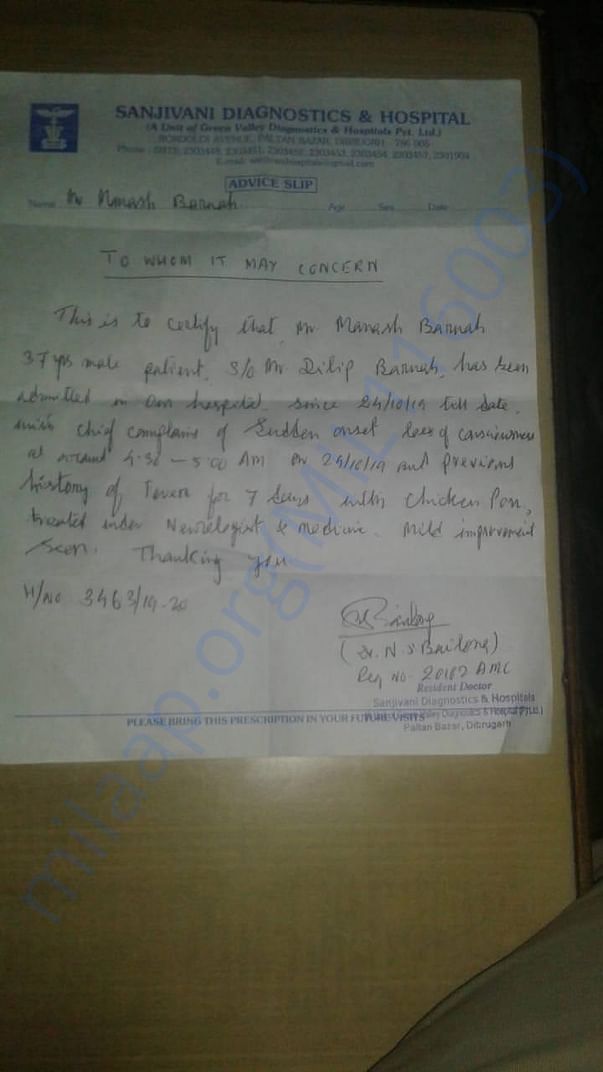 SANJIVANI DIAGNOSTICS & HOSPITAL
(A Unit of Green Valley Diagnostics & Hospitals Pvt. Ltd.)
BORDOLOI AVENUE, PALTAN BAZAR, DIBRUGARH - 786 005
ADVICE SLIP
Name Mr Manash Baruah Age Sex Date
TO WHOM IT MAY CONCERN
This is to certify that, Mr. Manash Baruah
37 yrs male patient, S/o Mr Dilip Baruah, has been
admitted in our hospital since 24/10/19 till date,
with chief complains of Sudden onset loss of
at around 4:30 - 5:00 AM on 24/10/19 and previous
history of Fever for 7 days with Chicken Pox,
treated under Neurologist & medicine. Mild improvement
seen. Thanking you
H/NO 3463/19-20
(Dr. N. S Bailong)
Reg No - 20182 AMC
Resident Doctor
Sanjivani Diagnostics & Hospitals
Paltan Bazar, Dibrugarh
PLEASE BRING THIS PRESCRIPTION IN YOUR FUTURE VISITS
milaap.org(MIL116003)